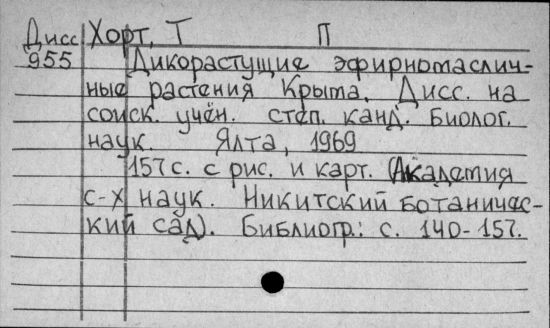 Дисс Хорт, Т П
955 Дикорастущие эфирномаслич-
ные растения Крыма. Дисс. на
соиск. учён. степ. канд. биолог.
наук. Ялта, 1969
157 с. с рис. и карт. (Академия
с-х наук. Никитский ботаничес-
кий сад). Библиогр.: с. 140-157.